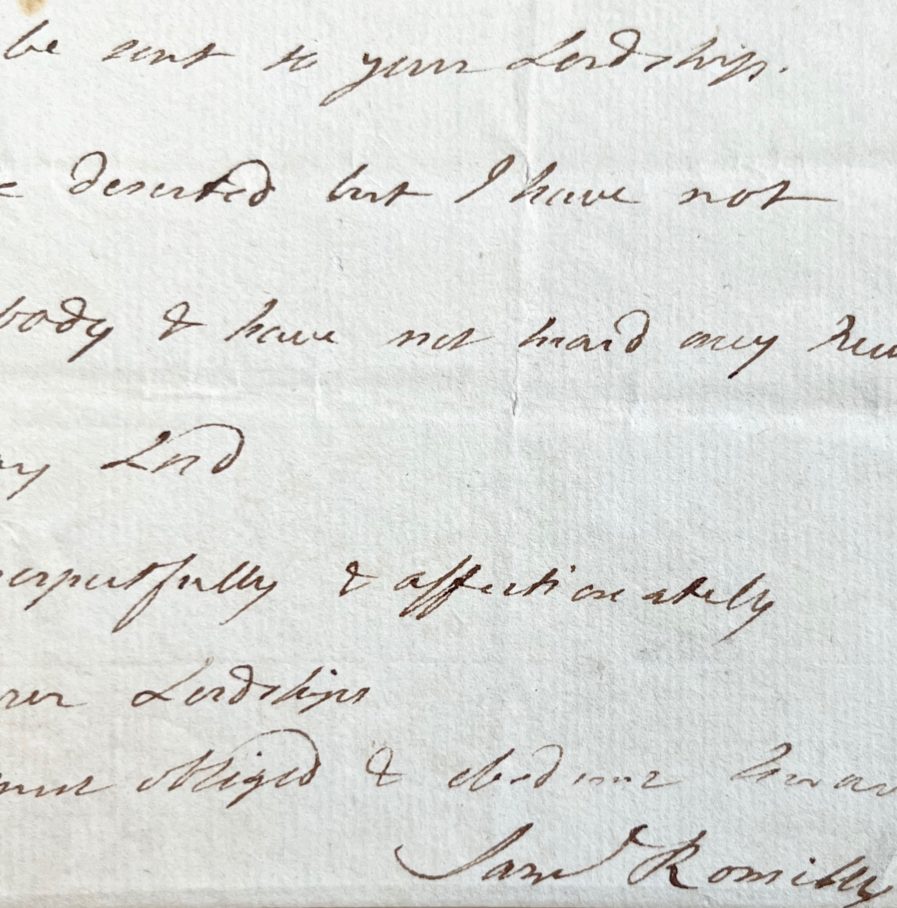 be sent to your Lordship.
deserted but I have not
body & have not heard any
Lord
respectfully & affectionately
Lordships
obliged & obedient
Saml Romilly